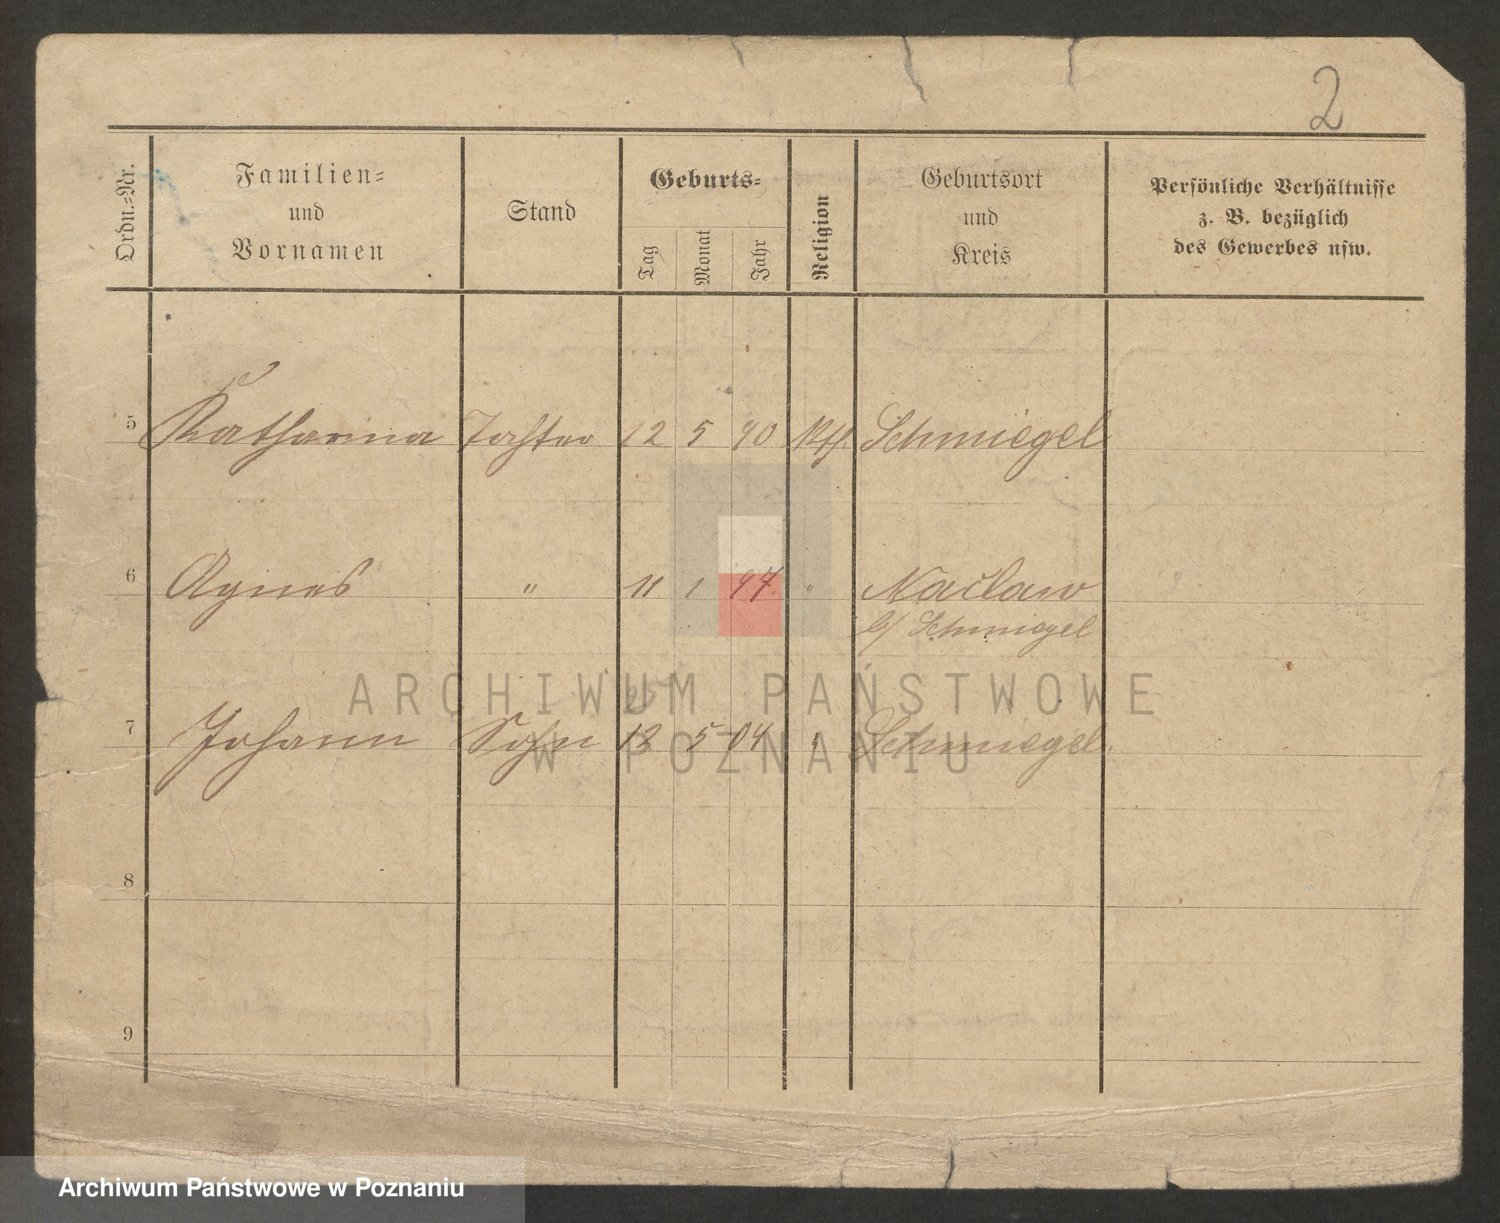 2
Ordn.=Nr.
Familien=
und
Vornamen
Stand
Geburts=
Tag
Monat
Jahr
Religion
Geburtsort
und
Kreis
Persönliche Verhältnisse
z. B. bezüglich
des Gewerbes usw.
5 Katharina Tochter 12 5 90 Kth. Schmiegel
6 Agnes " 11 1 97. " Naćlaw
b/ Schmiegel
7 Johann Sohn 5 04 " Schmiegel.
8
9
ARCHIWUM PAŃSTWOWE
W POZNANIU
Archiwum Państwowe w Poznaniu